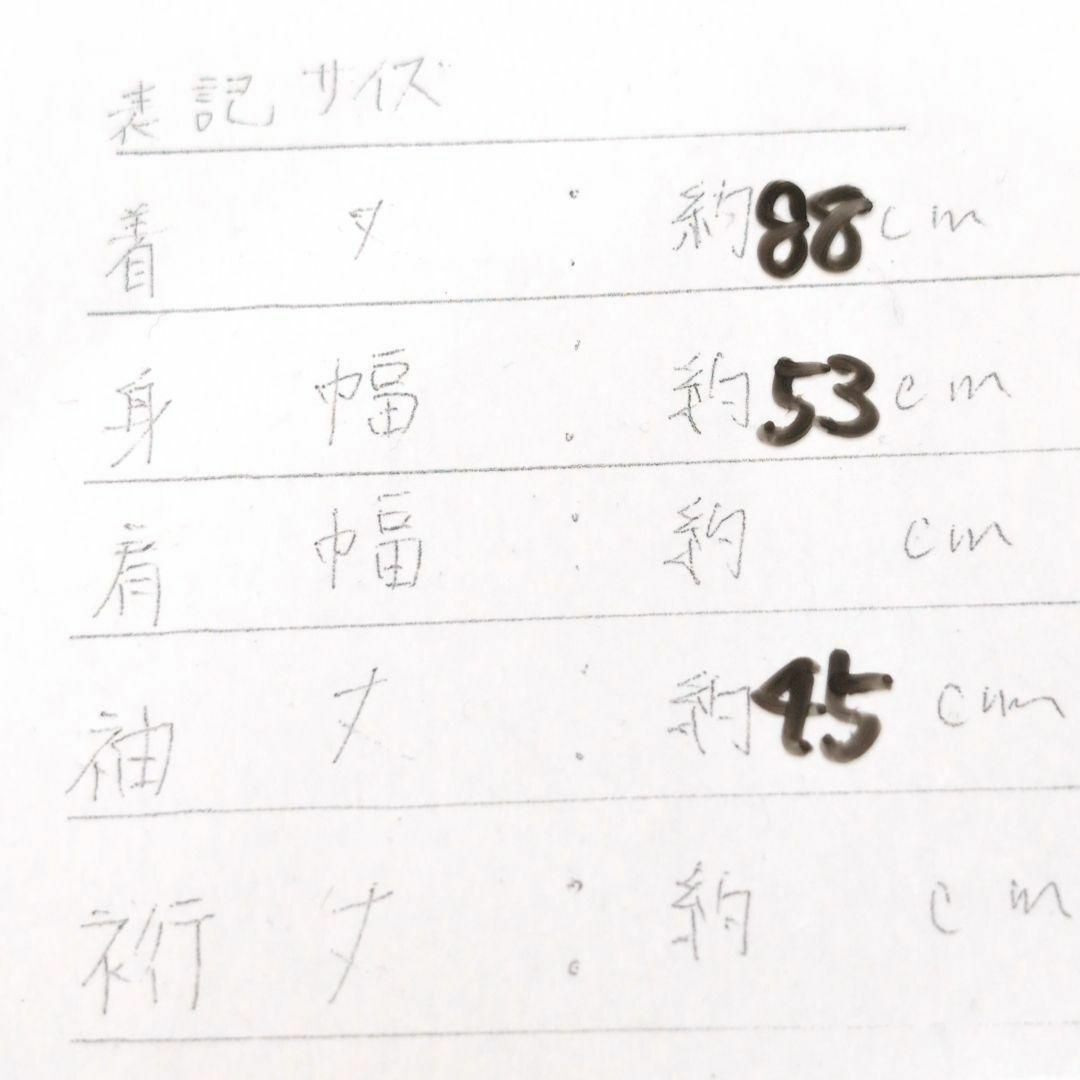 表記サイズ
着丈：約88cm
身幅：約53cm
肩幅：約 cm
袖丈：約45cm
裄丈：約 cm